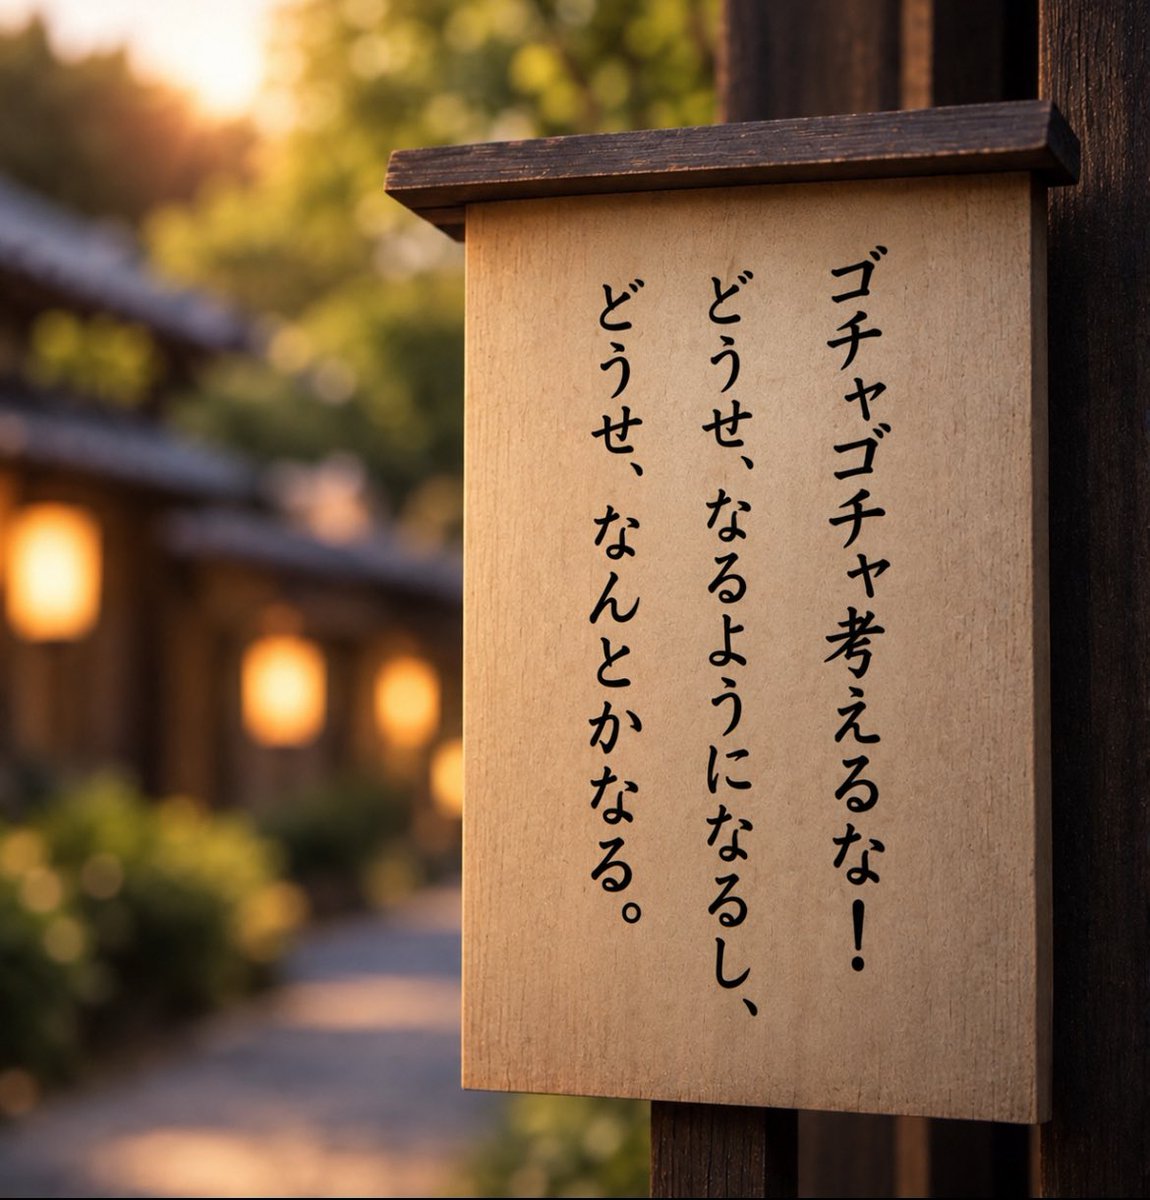 ゴチャゴチャ考えるな！
どうせ、なるようになるし、
どうせ、なんとかなる。